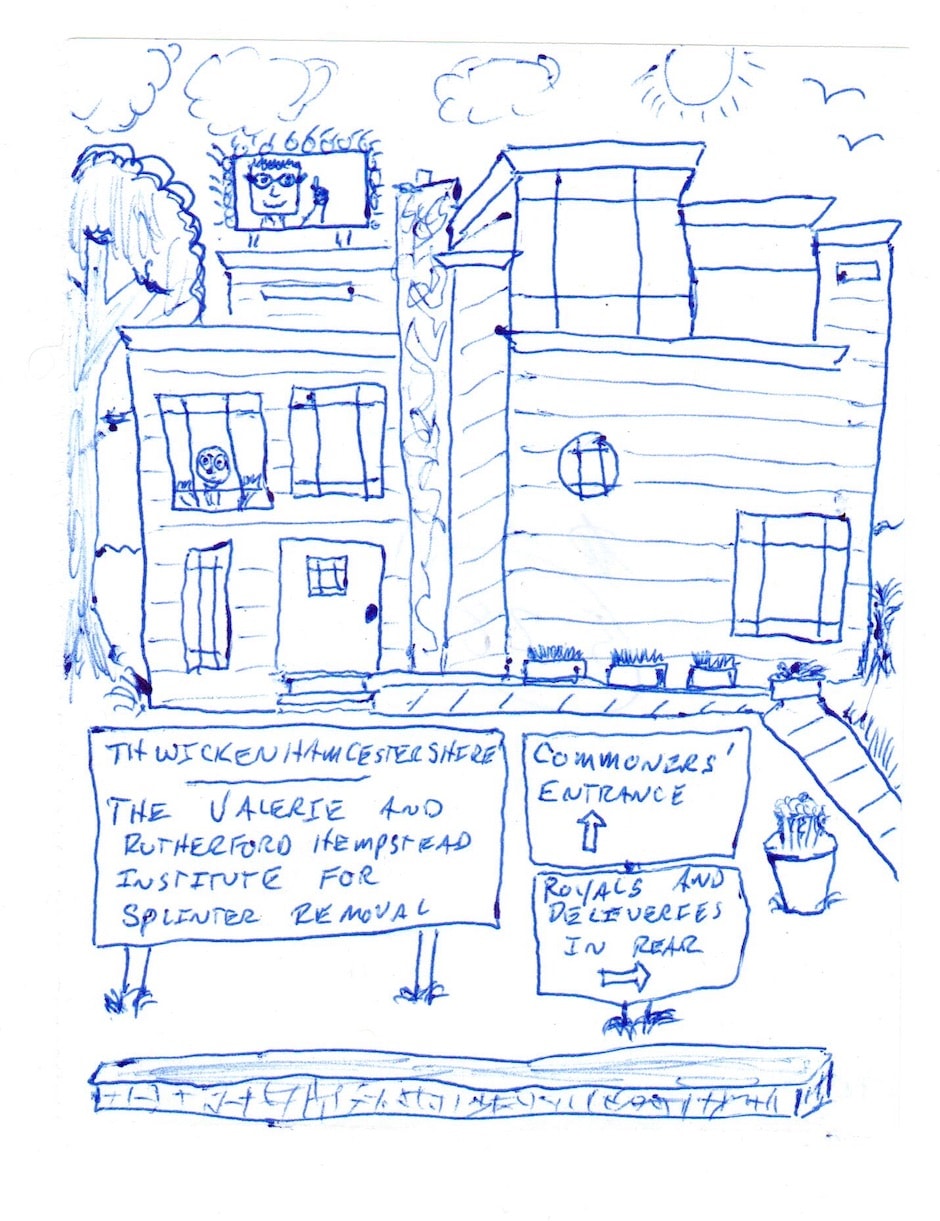 THWICKENHAMCESTERSHIRE
THE VALERIE AND
RUTHERFORD HEMPSTEAD
INSTITUTE FOR
SPLINTER REMOVAL
COMMONERS'
ENTRANCE
ROYALS AND
DELIEVERIES
IN REAR